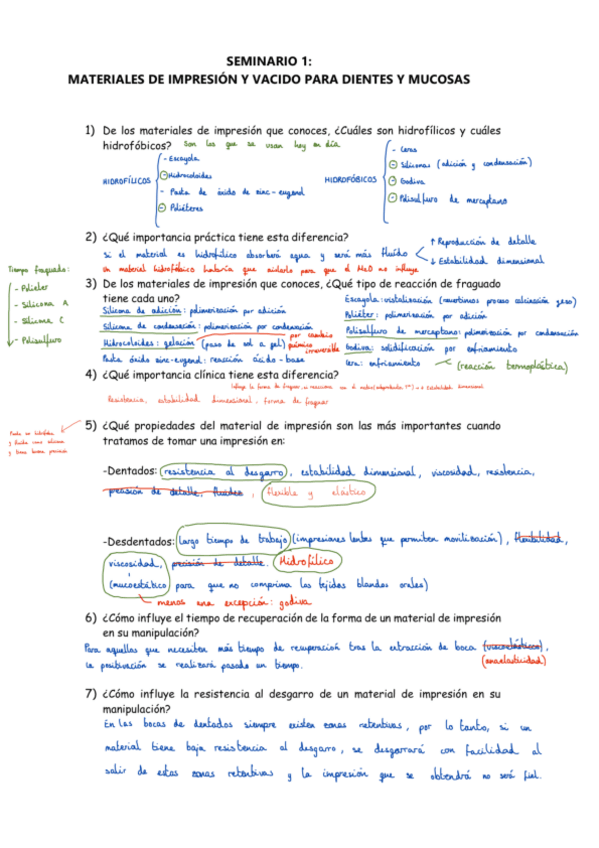 SEMINARIO 1:
MATERIALES DE IMPRESIÓN Y VACIDO PARA DIENTES Y MUCOSAS
1) De los materiales de impresión que conoces, ¿Cuáles son hidrofílicos y cuáles
hidrofóbicos? Son los que se usan hoy en día
HIDROFÍLICOS
- Escayola
- Hidrocoloides
- Pasta de óxido de zinc-eugenol
- Poliéteres
HIDROFÓBICOS
- Ceras
- Siliconas (adición y condensación)
- Godiva
- Polisulfuro de mercaptano
2) ¿Qué importancia práctica tiene esta diferencia?
↑ Reproducción de detalle
si el material es hidrofílico absorberá agua y será más fluido
↓ Estabilidad dimensional
un material hidrofóbico habría que aislarlo para que el H2O no influye
Tiempo fraguado:
- Poliéter
- Silicona A
- Silicona C
- Polisulfuro
3) De los materiales de impresión que conoces, ¿Qué tipo de reacción de fraguado
tiene cada uno?
Silicona de adición: polimerización por adición
Silicona de condensación: polimerización por condensación
Hidrocoloides: gelación (paso de sol a gel)
por cambio
químico
irreversible
Pasta óxido zinc-eugenol: reacción ácido-base
Escayola: cristalización (revertimos proceso calcinación yeso)
Poliéter: polimerización por adición
Polisulfuro de mercaptano: polimerización por condensación
Godiva: solidificación por enfriamiento
Cera: enfriamiento (reacción termoplástica)
4) ¿Qué importancia clínica tiene esta diferencia?
Resistencia, estabilidad dimensional, forma de fraguar
5) ¿Qué propiedades del material de impresión son las más importantes cuando
tratamos de tomar una impresión en:
-Dentados: resistencia al desgarro, estabilidad dimensional, viscosidad, resistencia,
precisión de detalle, fluidez, flexible y elástico
-Desdentados: largo tiempo de trabajo (impresiones lentas que permiten movilización), flexibilidad,
viscosidad, precisión de detalle. Hidrofílico
(mucoestático) para que no comprima los tejidos blandos orales)
menos una excepción: godiva
6) ¿Cómo influye el tiempo de recuperación de la forma de un material de impresión
en su manipulación?
Para aquellas que necesiten más tiempo de recuperación tras la extracción de boca (viscoelástico),
la positivación se realizará pasado un tiempo. (anaelasticidad)
7) ¿Cómo influye la resistencia al desgarro de un material de impresión en su
manipulación?
En las bocas de dentados siempre existen zonas retentivas, por lo tanto, si un
material tiene baja resistencia al desgarro, se desgarrará con facilidad al
salir de estas zonas retentivas y la impresión que se obtendrá no será fiel.